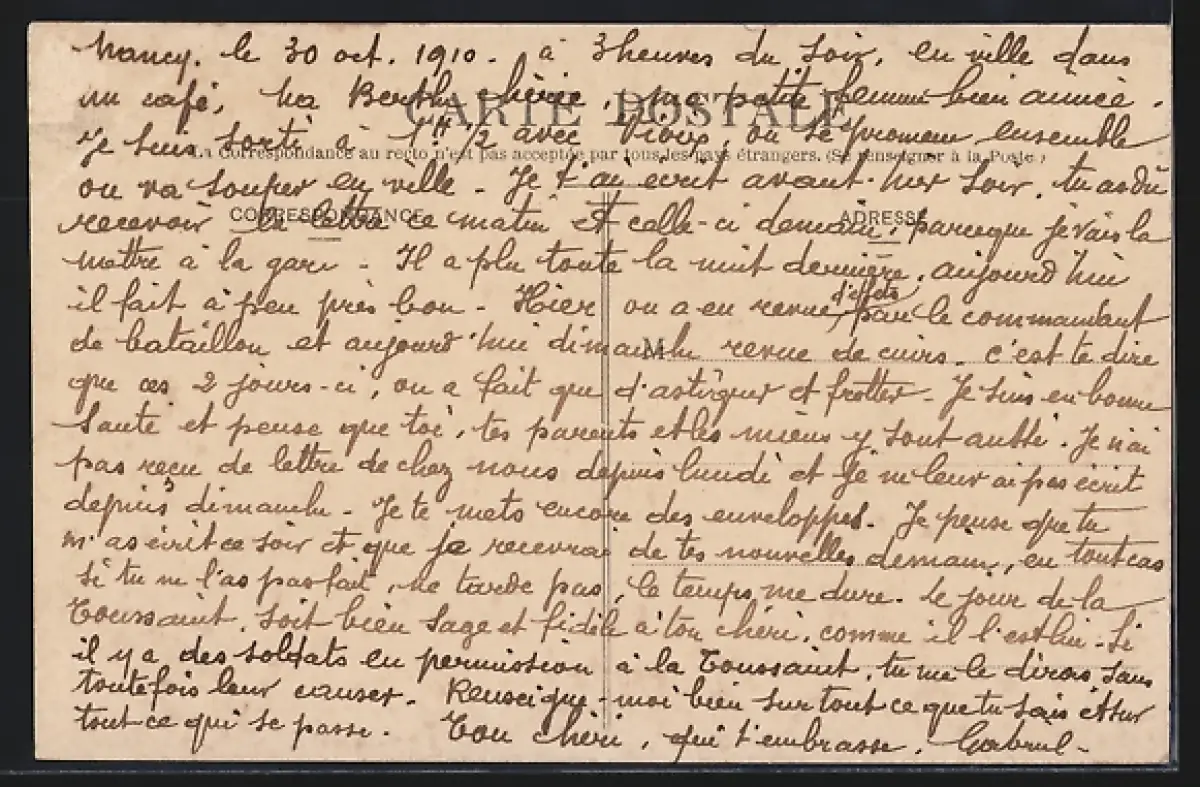 Nancy, le 30 oct. 1910. à 3 heures du soir, en ville dans
un café, Ma Berthe chérie, ma petite femme bien aimée.
CARTE POSTALE
Je suis sorti à 1 H 1/2 avec Vioux, on se promène ensemble
La Correspondance au recto n'est pas acceptée par tous les pays étrangers. (Se renseigner à la Poste.)
on va souper en ville - Je t'ai écrit avant-hier soir, tu as dû
recevoir la lettre ce matin et celle-ci demain, parceque je vais la
CORRESPONDANCE
ADRESSE
mettre à la gare - Il a plu toute la nuit dernière, aujourd'hui
il fait à peu près bon - Hier on a eu revue d'effets par le commandant
de bataillon et aujourd'hui dimanche revue de cuirs. c'est te dire
M
que ces 2 jours-ci, on a fait que d'astiquer et frotter - Je suis en bonne
santé et pense que toi, tes parents et les miens y sont aussi. Je n'ai
pas reçu de lettre de chez nous depuis lundi et je ne leur ai pas écrit
depuis dimanche - Je te mets encore des enveloppes. Je pense que tu
m'as écrit ce soir et que je recevrai de tes nouvelles demain, en tout cas
si tu ne l'as pas fait, ne tarde pas, le temps me dure. Le jour de la
Toussaint, soit bien sage et fidèle à ton chéri, comme il l'est lui. Si
il y a des soldats en permission à la Toussaint, tu me le diras sans
toutefois leur causer. Renseigne-moi bien sur tout ce que tu sais et sur
tout ce qui se passe. Ton chéri, qui t'embrasse. Gabriel -